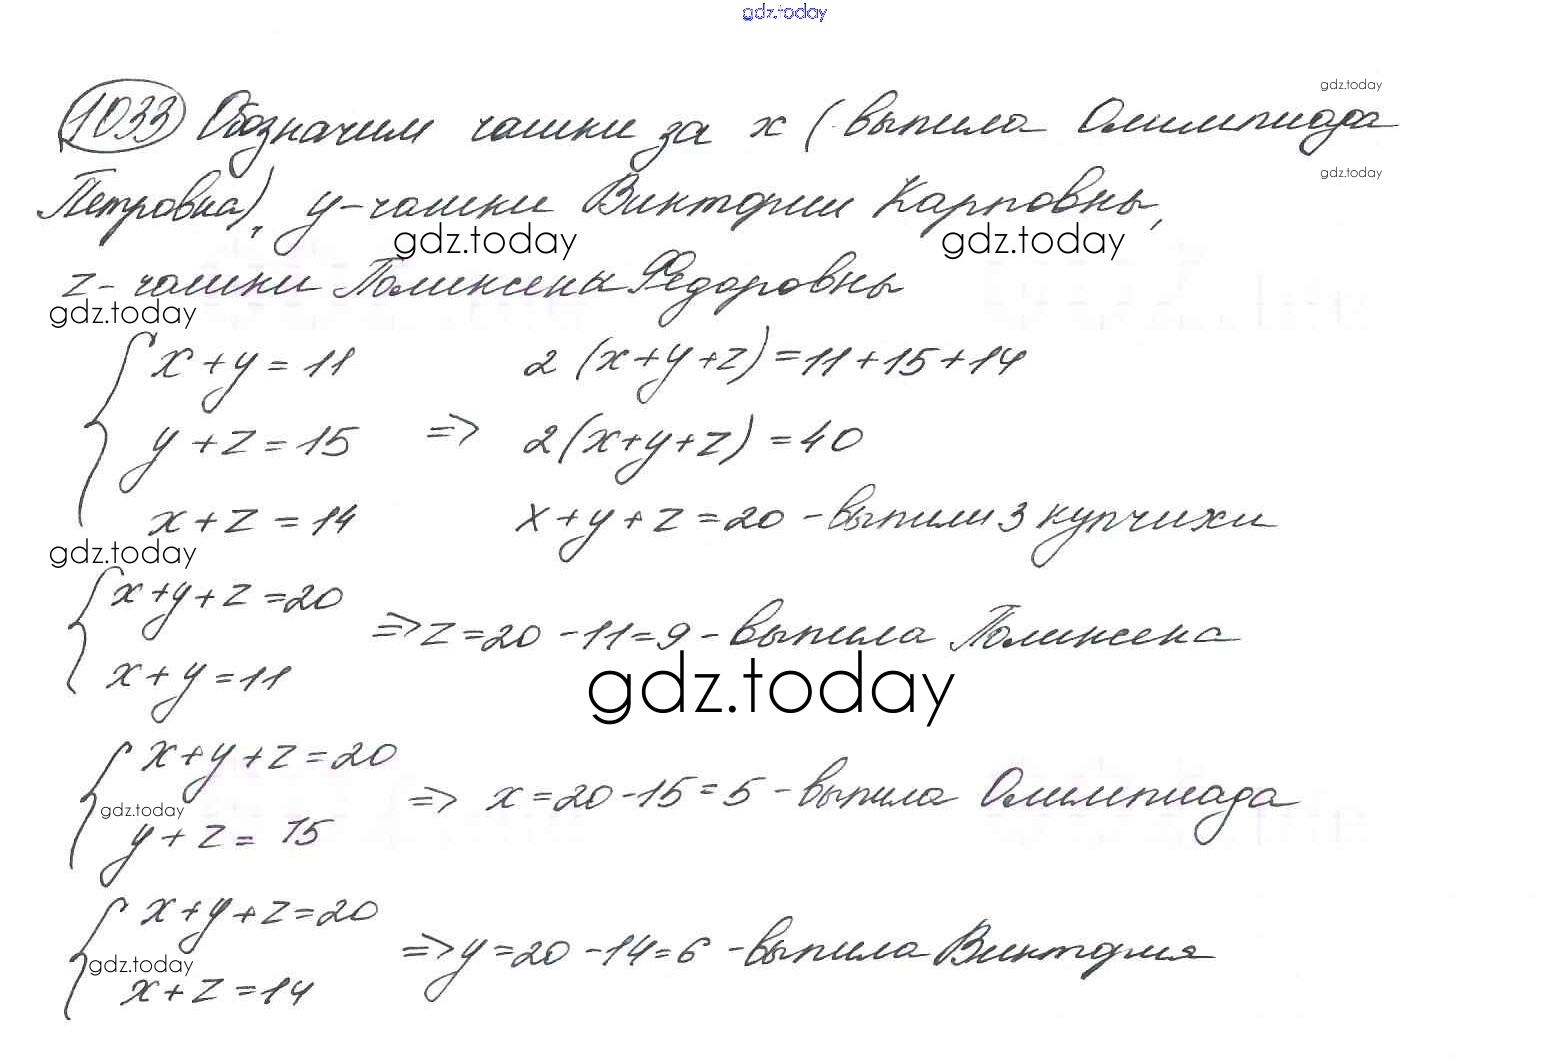 gdz.today
gdz.today
1033 Обозначим чашки за x (выпила Олимпиада
gdz.today
Петровна), y – чашки Виктории Карповны,
gdz.today gdz.today
z – чашки Поликсены Федоровны
gdz.today
x + y = 11 2 (x + y + z) = 11 + 15 + 14
y + z = 15 => 2(x + y + z) = 40
x + z = 14 x + y + z = 20 – выпили 3 купчихи
gdz.today
x + y + z = 20
=> z = 20 – 11 = 9 – выпила Поликсена
x + y = 11
gdz.today
x + y + z = 20
=> x = 20 – 15 = 5 – выпила Олимпиада
gdz.today
y + z = 15
x + y + z = 20
=> y = 20 – 14 = 6 – выпила Виктория
gdz.today
x + z = 14